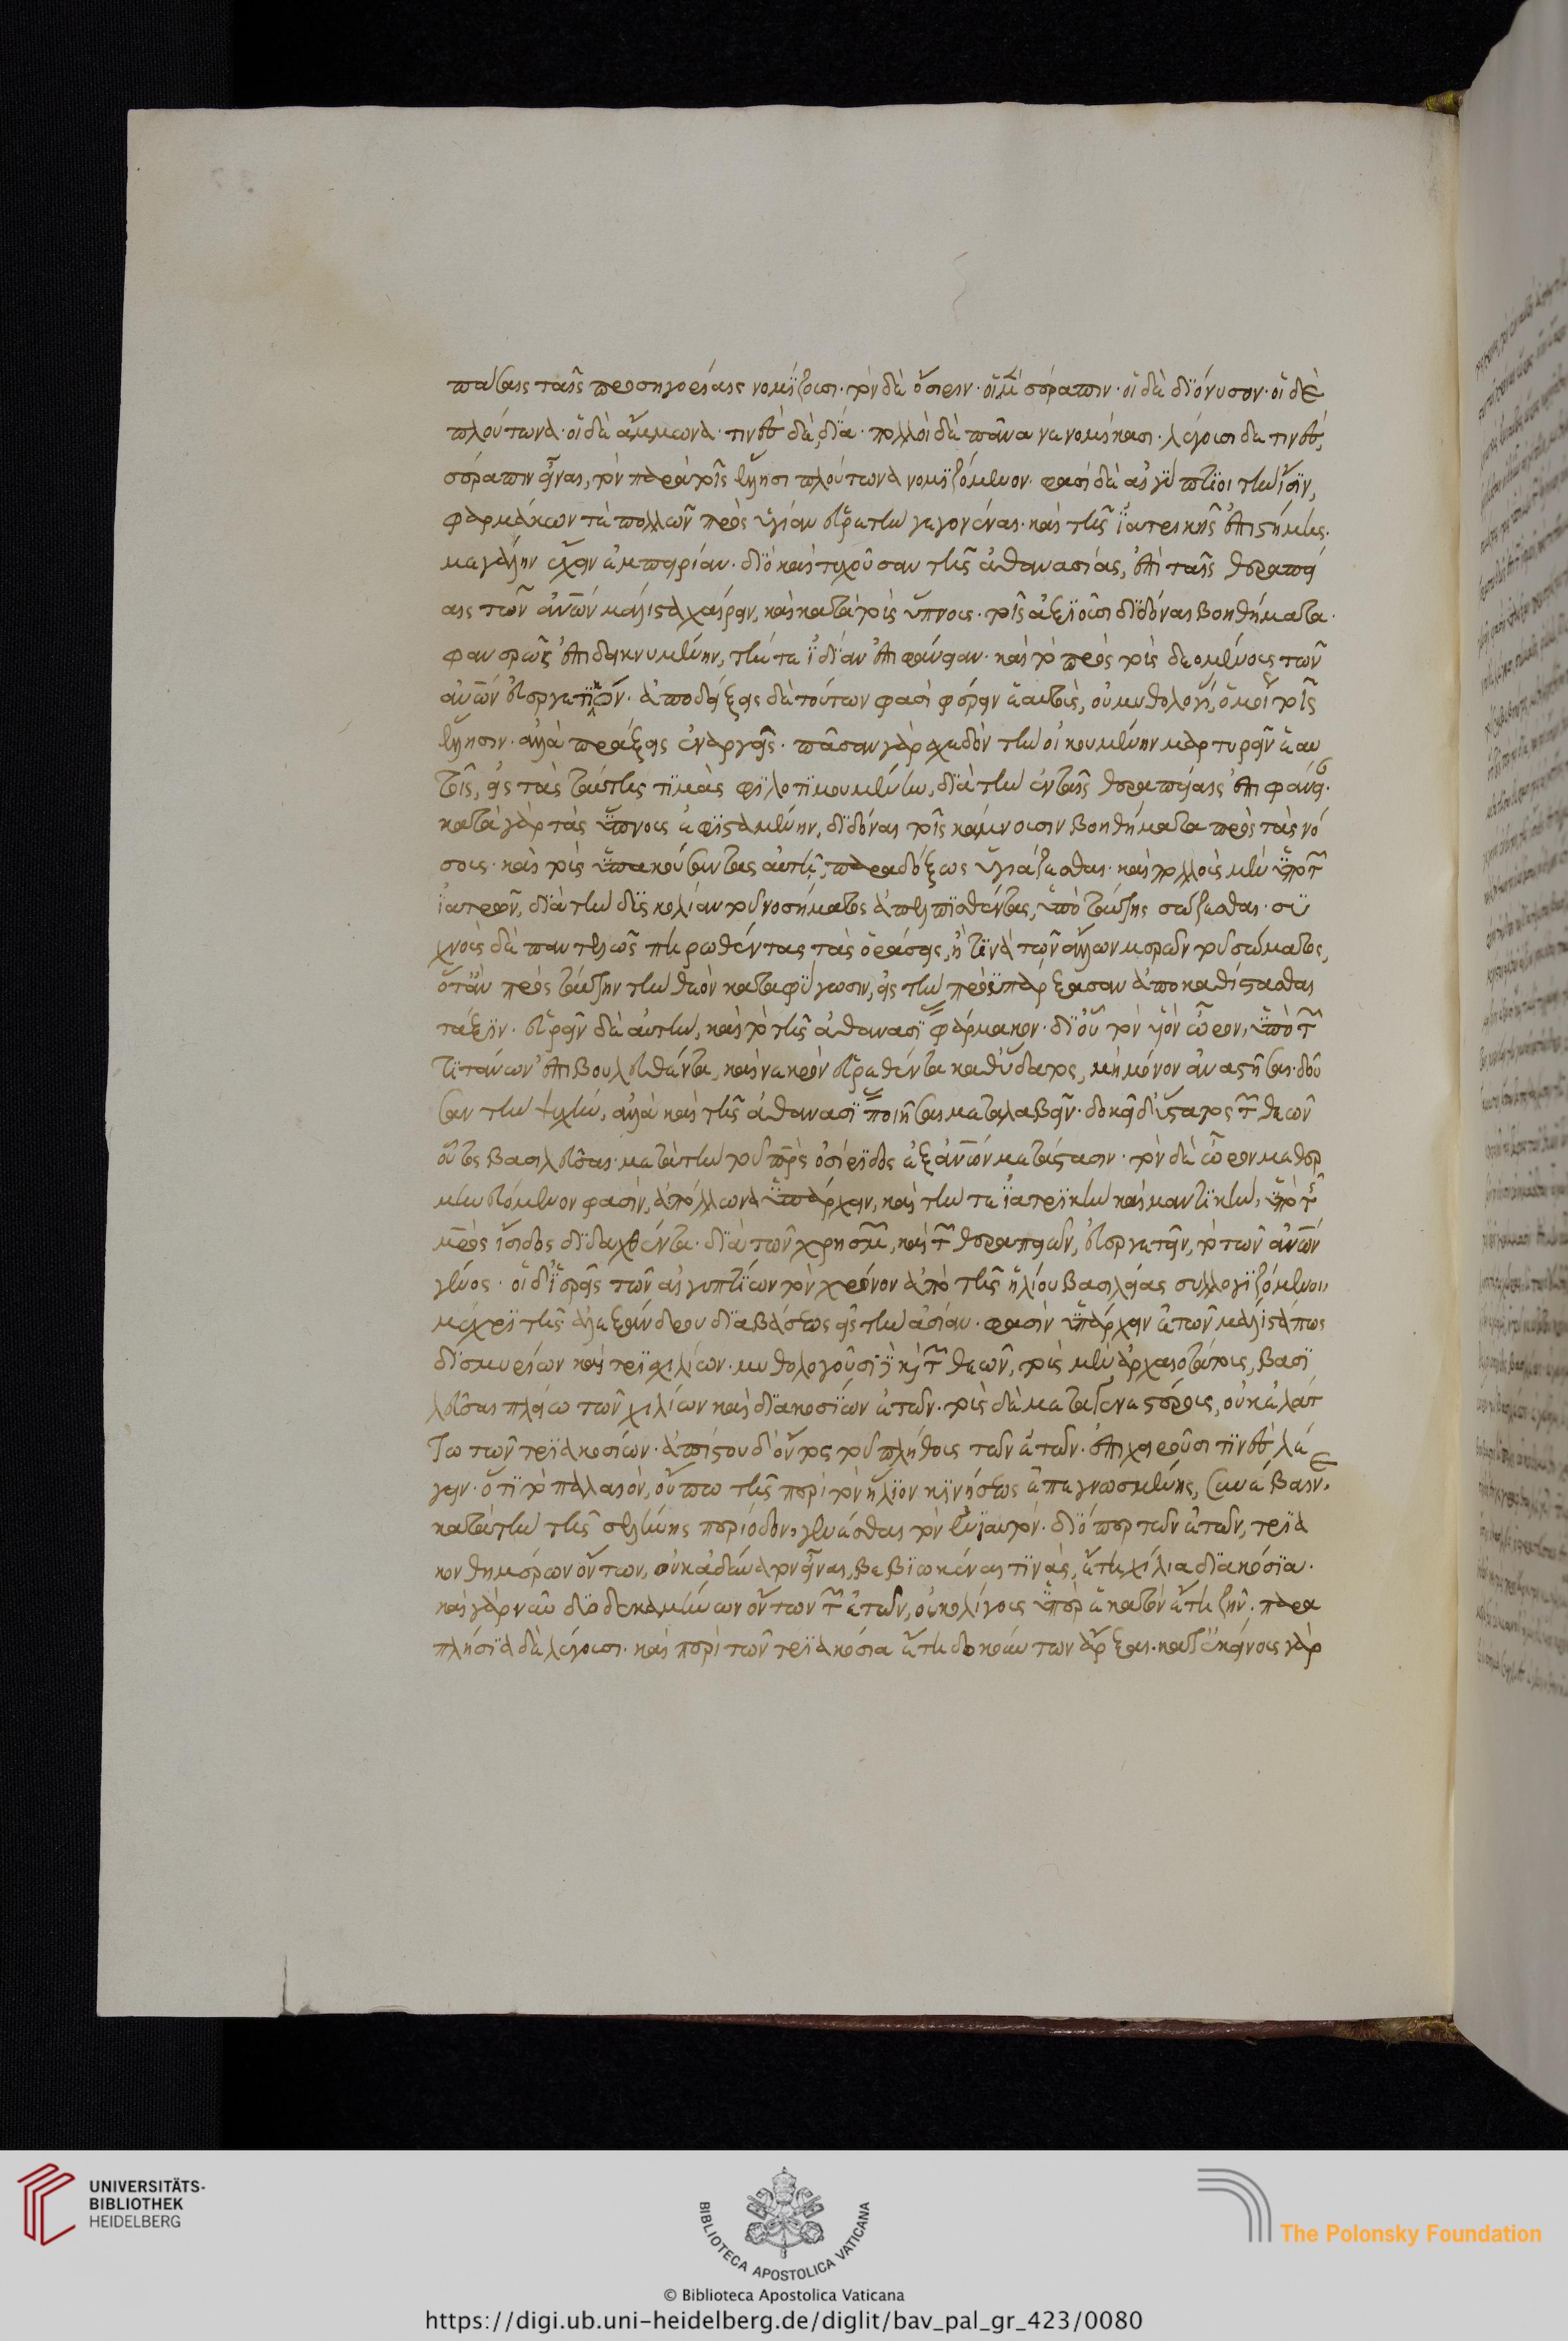 πάσαις ταῖς προσηγορίαις νομίζουσι· τὸν δὲ ὄσιριν· οἱ μὲν σέραπιν· οἱ δὲ διόνυσον· οἱ δὲ
πλούτωνα· οἱ δὲ ἄμμωνα· τινὲς δὲ, δία· πολλοὶ δὲ πᾶνα νενομίκασι· λέγουσι δε τινὲς,
σέραπιν εἶναι, τὸν παρὰ τοῖς ἕλλησι πλούτωνα νομιζόμενον· φασὶ δὲ αἰγύπτιοι τὴν ἶσιν,
φαρμάκων τὲ πολλῶν πρὸς ὑγίαν εὑρέτην γεγονέναι· καὶ τῆς ἰατρικῆς ἐπιστήμης·
μεγάλην ἔχειν ἐμπειρίαν· διὸ καὶ τυχοῦσαν τῆς ἀθανασίας, ἐπὶ ταῖς θεραπεί
αις τῶν ἀνων μάλιστα χαίρειν, καὶ κατὰ τοὺς ὕπνους· τοῖς ἀξιοῦσι διδόναι βοηθήματα·
φανερῶς ἐπιδεικνυμένην, τήν τε ἰδίαν ἐπιφάνειαν· καὶ τὸ πρὸς τοὺς δεομένους τῶν
ἀνων εὐεργετικόν· ἀποδείξεις δὲ τούτων φασὶ φέρειν ἑαυτοὺς, οὐ μυθολογίας, ὁμοίως τοῖς
ἕλλησιν· ἀλλὰ πράξεις ἐναργεῖς· πᾶσαν γὰρ σχεδὸν τὴν οἰκουμένην μαρτυρεῖν ἑαυ
τοῖς, εἰς τὰς ταύτης τιμὰς φιλοτιμουμένην, διὰ τὴν ἐν ταῖς θεραπείαις ἐπιφάνειαν·
κατὰ γὰρ τὰς ὕπνους ἐφισταμένην, διδόναι τοῖς κάμνουσιν βοηθήματα πρὸς τὰς νό
σους· καὶ τοὺς ὑπακούσαντας αὐτῆς, παραδόξως ὑγιάζεσθαι· καὶ πολλοὺς μὲν ὑπὸ τῶν
ἰατρῶν, διὰ τὴν δυσκολίαν τοῦ νοσήματος ἀπελπισθέντας, ὑπὸ ταύτης σώζεσθαι· συ
χνοὺς δὲ παντελῶς πηρωθέντας τὰς ὁράσεις, ἤ τινα τῶν ἄλλων μερῶν τοῦ σώματος,
ὅταν πρὸς ταύτην τὴν θεὸν καταφύγωσιν, εἰς τὴν προϋπάρξασαν ἀποκαθίστασθαι
τάξιν· εὑρεῖν δὲ αὐτὴν, καὶ τὸ τῆς ἀθανασίας φάρμακον· δι' οὗ τὸν υἱὸν ὧρον, ὑπὸ τῶν
τιτάνων ἐπιβουλευθέντα, καὶ νεκρὸν εὑρεθέντα καθ' ὕδατος, μὴ μόνον ἀναστῆσαι· δοῦ
σαν τὴν ψυχὴν, ἀλλὰ καὶ τῆς ἀθανασίας ποιῆσαι μεταλαβεῖν· δοκεῖ δ' ὕστατος τῶν θεῶν
οὗτος βασιλεῦσαι· μετὰ τὴν τοῦ πρς ὀσίριδος ἐξ ἀνων μετάστασιν· τὸν δὲ ὧρον μεθερ
μηνευόμενον φασὶν, ἀπόλλωνα ὑπάρχειν, καὶ τήν τε ἰατρικὴν καὶ μαντικὴν, ὑπὸ τῆς
μρς ἴσιδος διδαχθέντα· διὰ τῶν χρησμῶν, καὶ τῶν θεραπειῶν, εὐεργετεῖν, τὸ τῶν ἀνων
γένος· οἱ δ' ἱερεῖς τῶν αἰγυπτίων τὸν χρόνον ἀπὸ τῆς ἡλίου βασιλείας συλλογιζόμενοι,
μέχρι τῆς ἀλεξάνδρου διαβάσεως εἰς τὴν ἀσίαν· φασὶν ὑπάρχειν ἐτῶν μάλιστά πως
δισμυρίων καὶ τρισχιλίων· μυθολογοῦσι δὲ καὶ τῶν θεῶν, τοὺς μὲν ἀρχαιοτάτους, βασι
λεῦσαι πλείω τῶν χιλίων καὶ διακοσίων ἐτῶν· τοὺς δὲ μεταγενεστέρους, οὐκ ἐλάτ
τω τῶν τριακοσίων· ἀπίστου δ' ὄντος τοῦ πλήθους τῶν ἐτῶν· ἐπιχειροῦσι τινὲς λέ
γειν· ὅτι τὸ παλαιὸν, οὔπω τῆς περὶ τὸν ἥλιον κινήσεως ἐπεγνωσμένης, συνέβαινε,
κατὰ τὴν τῆς σελήνης περίοδον, γενέσθαι τὸν ἐνιαυτόν· διόπερ τῶν ἐτῶν, τρια
κονθημέρων ὄντων, οὐκ ἀδύνατον εἶναι, βεβιωκέναι τινὰς, ἔτη χίλια διακόσια·
καὶ γὰρ νῦν δυοδεκαμήνων ὄντων τῶν ἐτῶν, οὐκ ὀλίγους ὑπὲρ ἑκατὸν ἔτη ζῆν· παρα
πλήσια δὲ λέγουσι· καὶ περὶ τῶν τριακόσια ἔτη δοκούντων ἄρξαι· κατ' ἐκείνους γὰρ
UNIVERSITÄTS-
BIBLIOTHEK
HEIDELBERG
BIBLIOTECA APOSTOLICA VATICANA
The Polonsky Foundation
© Biblioteca Apostolica Vaticana
https://digi.ub.uni-heidelberg.de/diglit/bav_pal_gr_423/0080